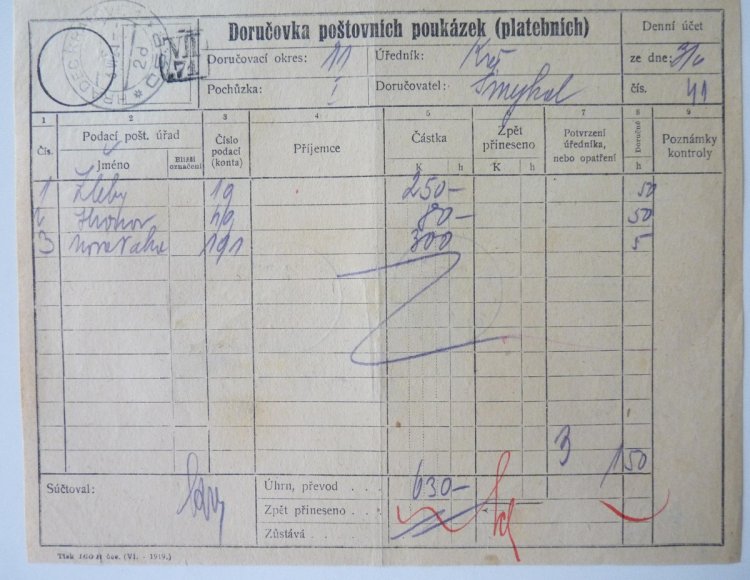 Doručovka poštovních poukázek (platebních)
Denní účet
Doručovací okres: 11
Úředník:
ze dne:
Pochůzka: I
Doručovatel: Smykal
čís. 41
1 2 3 4 5 6 7 8 9
Čís.
Podací pošt. úřad
Jméno
Bližší označení
Číslo podací (konta)
Příjemce
Částka
K h
Zpět přineseno
K h
Potvrzení úředníka, nebo opatření
Doručné
h
Poznámky kontroly
1 Žleby 19 250- 50
2 49 80- 50
3 191 300 5
3 150
Súčtoval:
Úhrn, převod . . . 630-
Zpět přineseno . . .
Zůstává . . .
(VI. - 1919.)